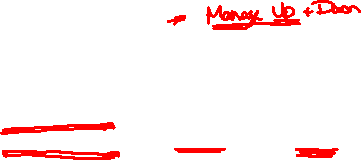 → Manage Up + Down